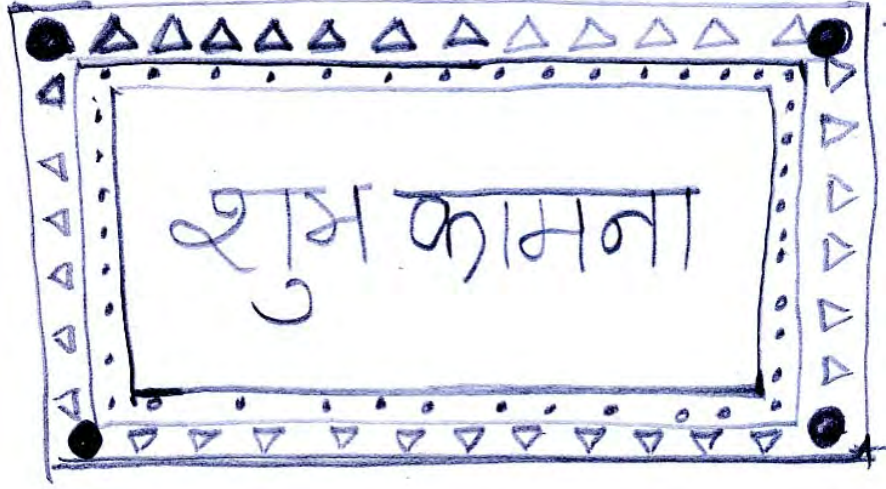 शुभ कामना